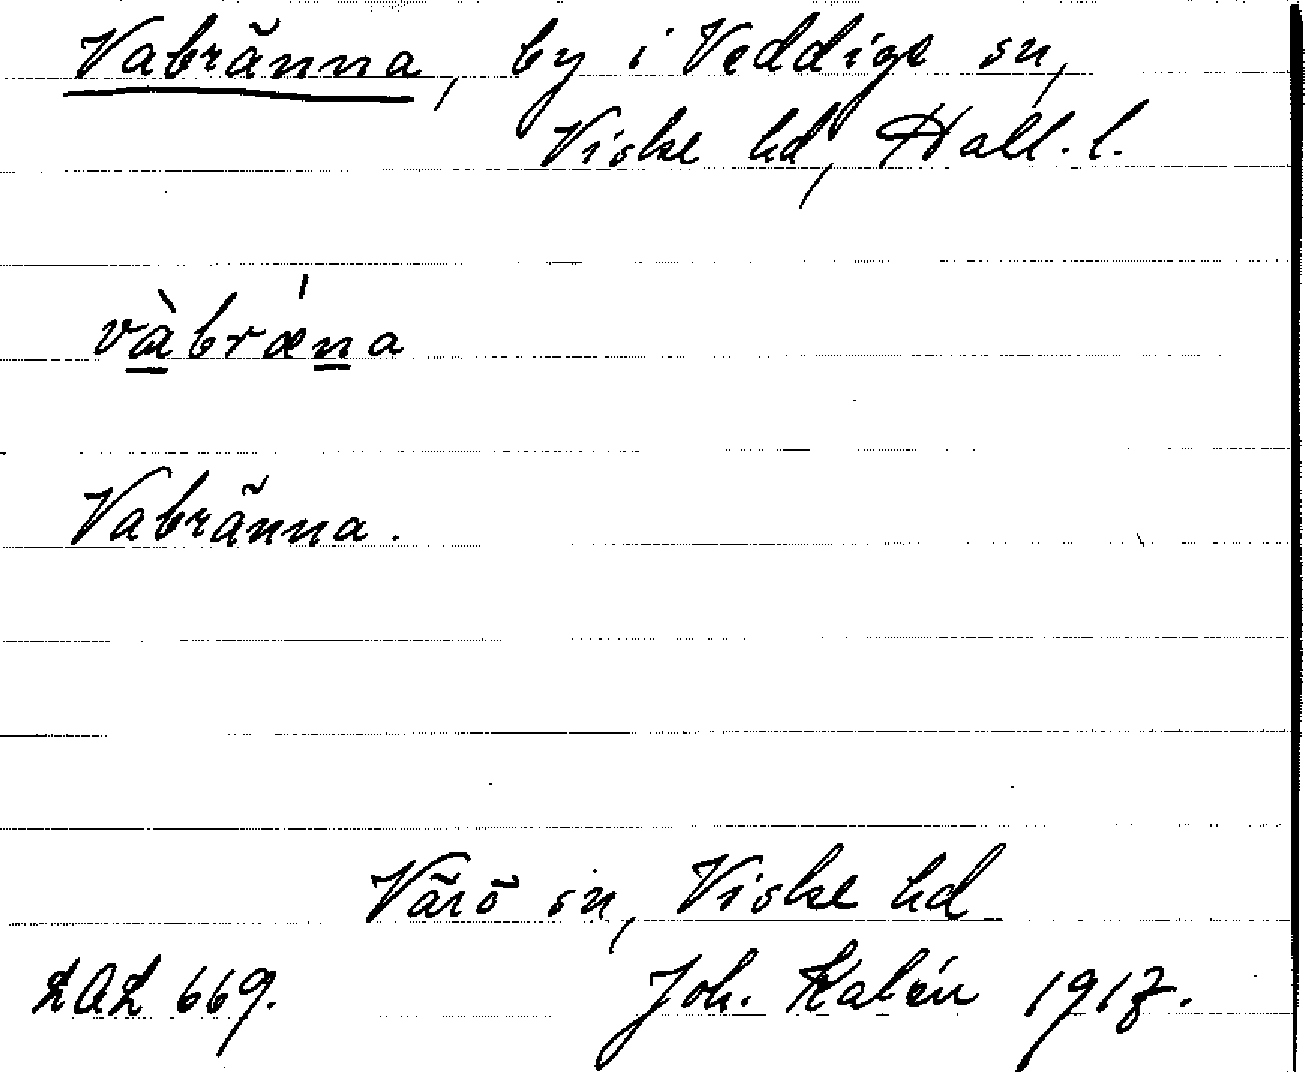 Vabränna, by i Veddige sn,
Viske hd, Hall. l.
vàbrǽna
Vabränna.
Värö sn, Viske hd
LAL 669. Joh. Kalén 1917.